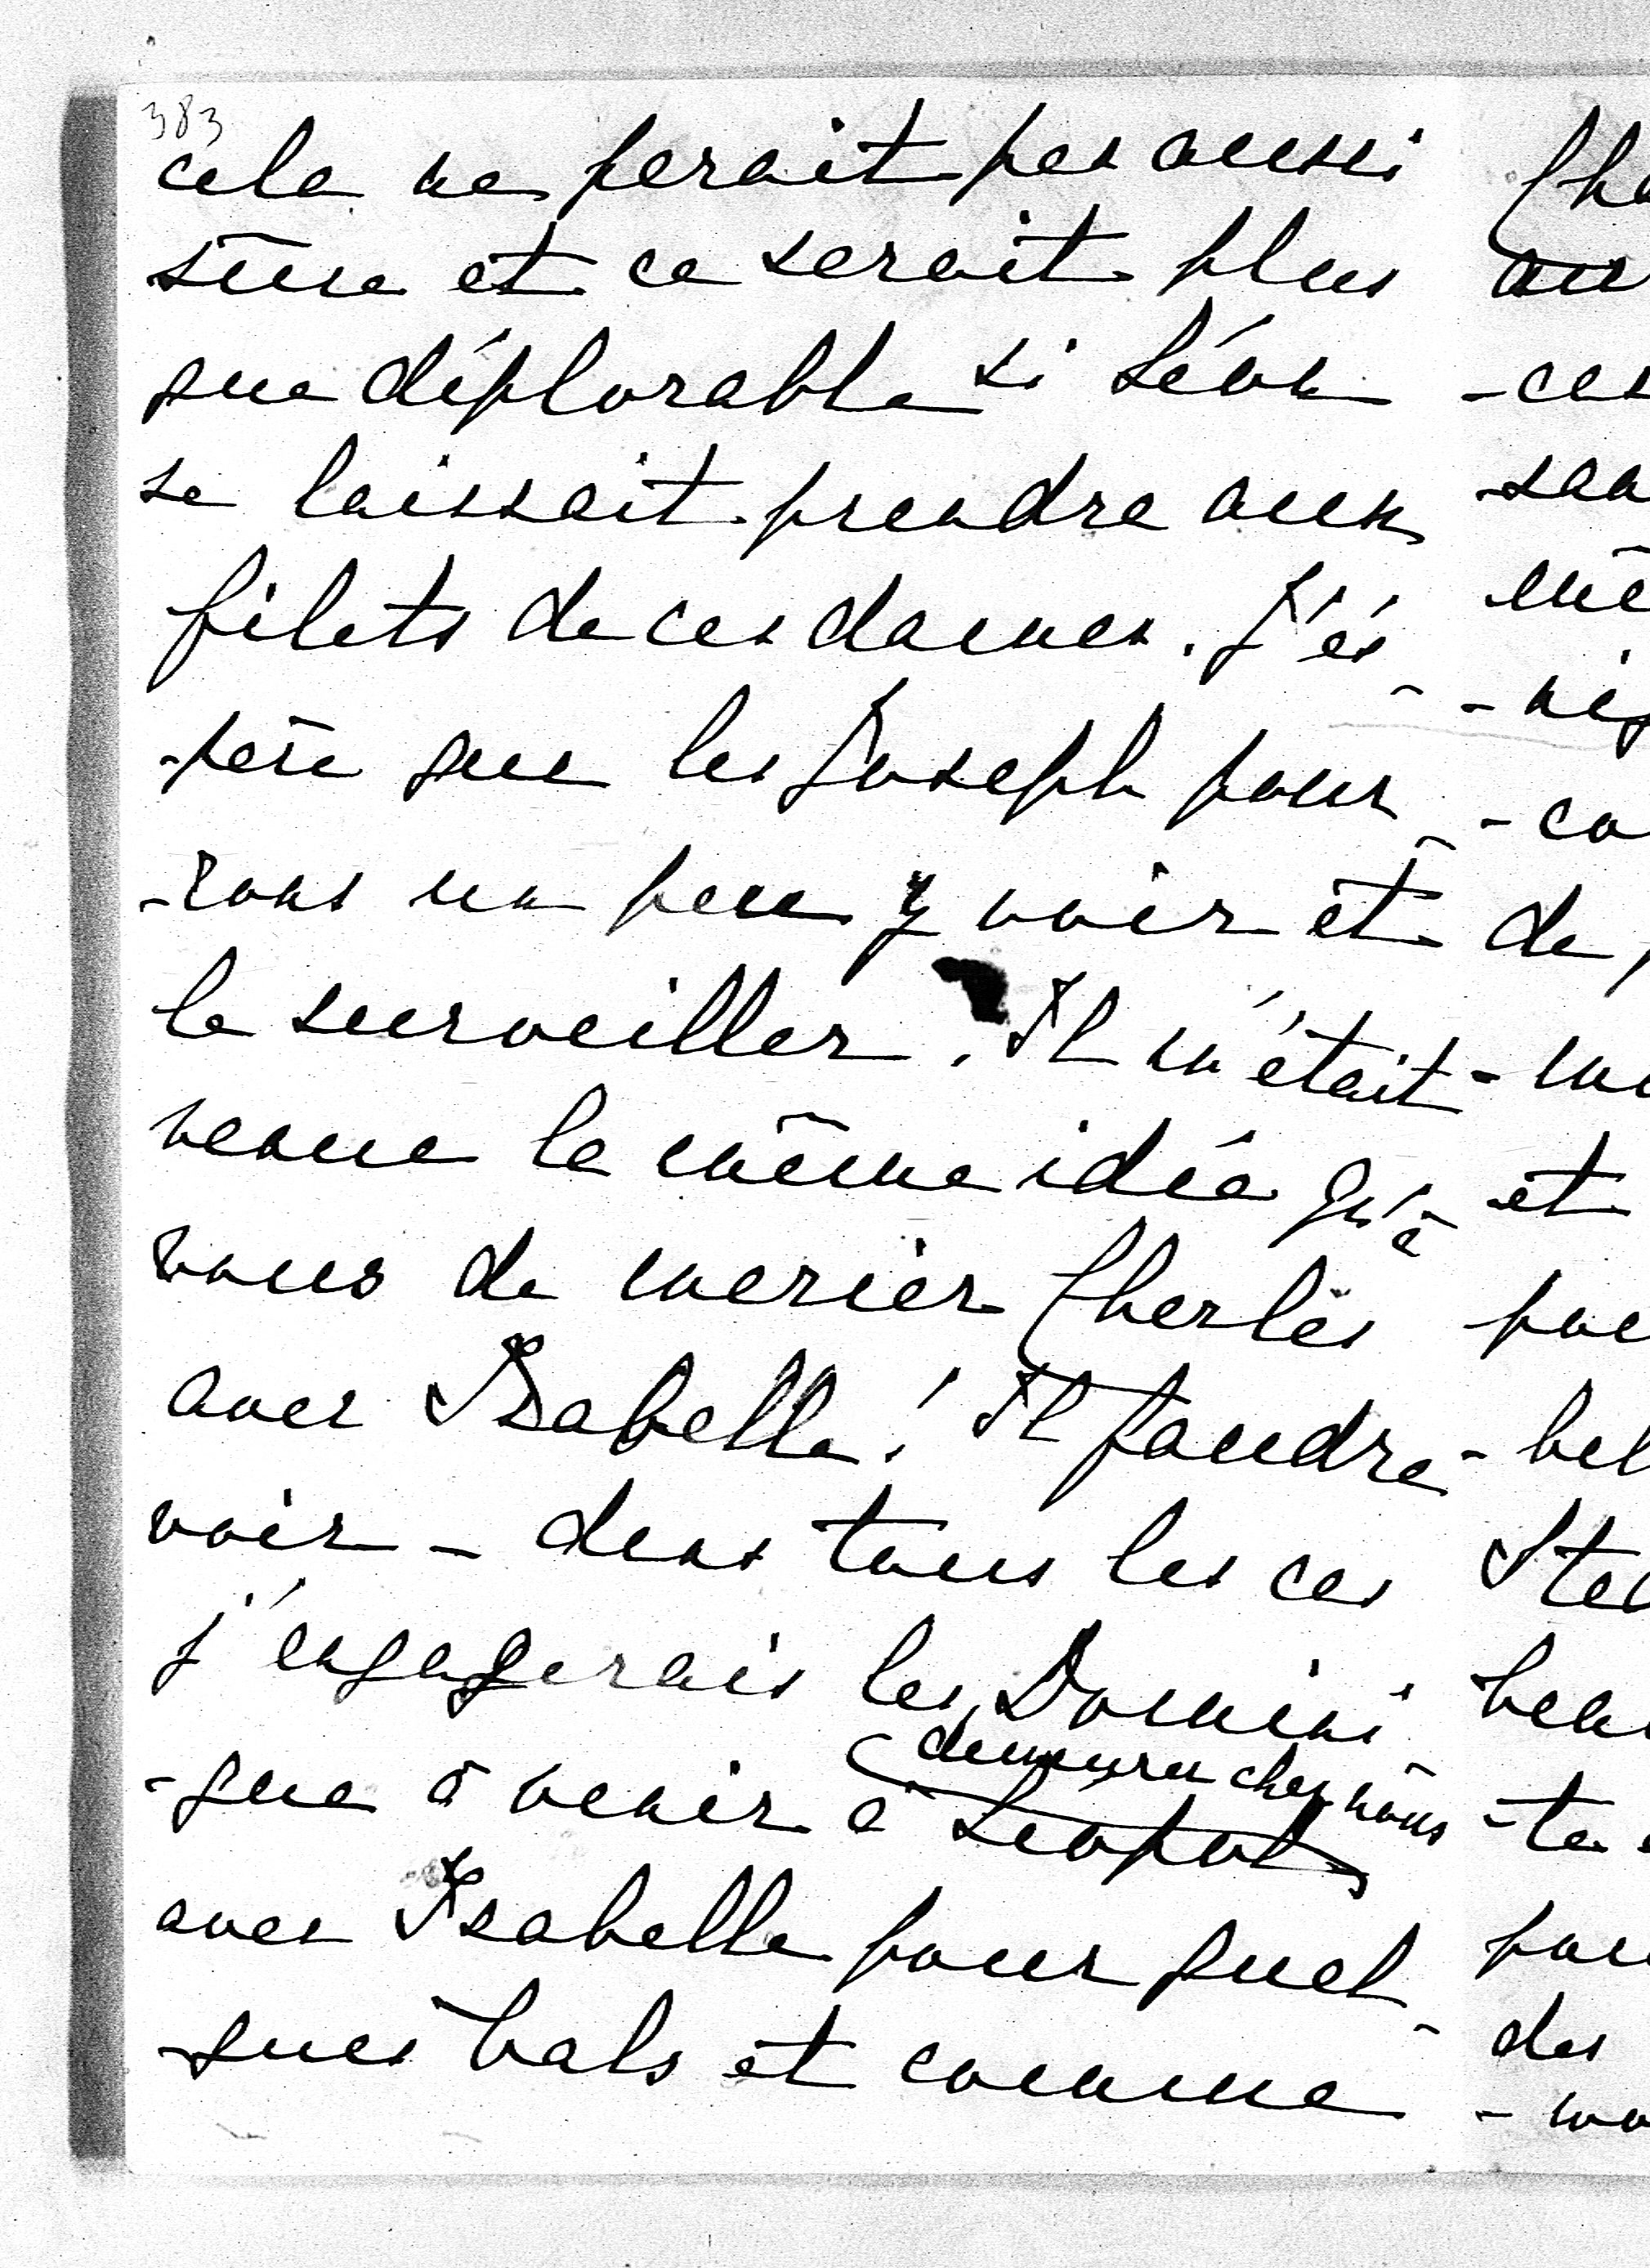 383
cela ne ferait pas aussi
sûre et ce serait plus
que déplorable si Léon
se laissait prendre aux
filets de ces dames. J'es-
-père que les Joseph pour-
-rons un peu y voir et
le surveiller. Il m'était
venue la même idée qu'à
vous de marier Charles
avec Isabelle! Il faudra
voir - dans tous les cas
j'engagerais les Domini
-que à venir à Léopol
demeurer chez nous
avec Isabelle pour quel-
-ques bals et comme